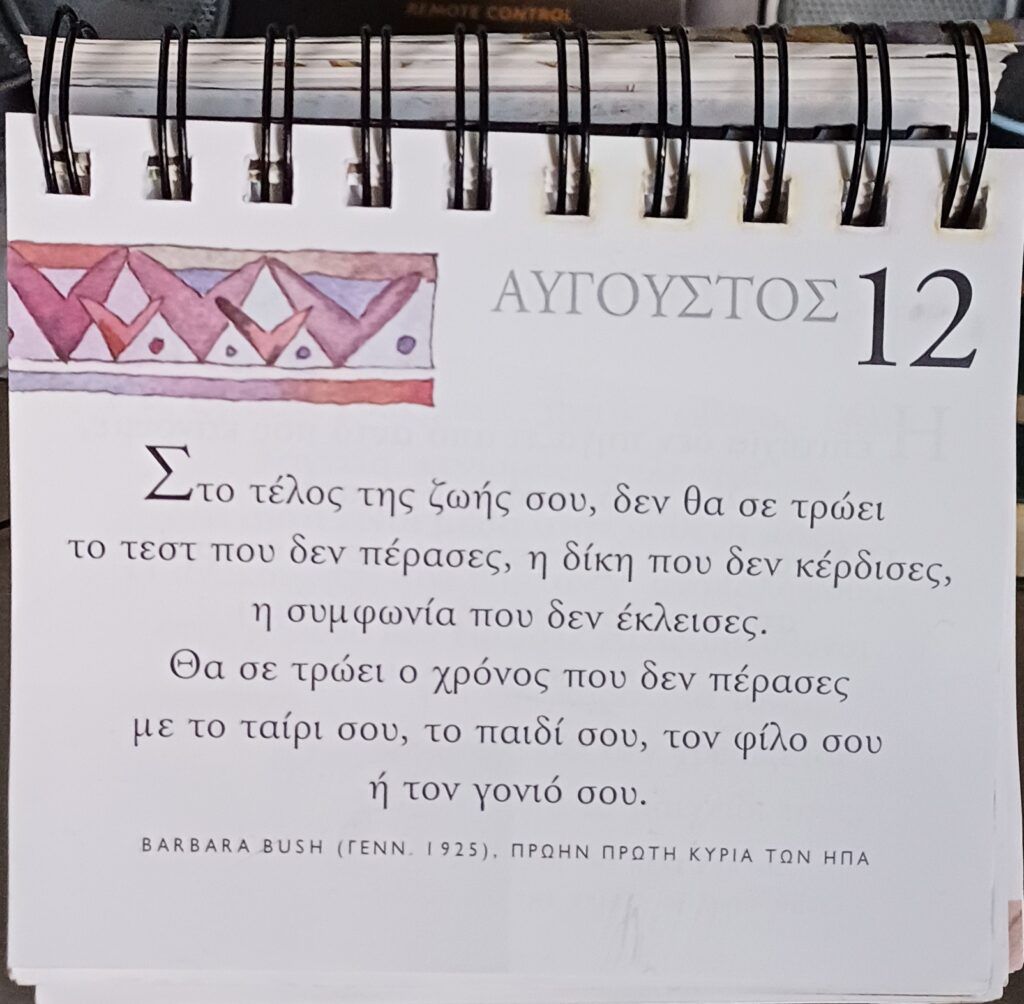 REMOTE CONTROL
ΑΥΓΟΥΣΤΟΣ 12
Στο τέλος της ζωής σου, δεν θα σε τρώει
το τεστ που δεν πέρασες, η δίκη που δεν κέρδισες,
η συμφωνία που δεν έκλεισες.
Θα σε τρώει ο χρόνος που δεν πέρασες
με το ταίρι σου, το παιδί σου, τον φίλο σου
ή τον γονιό σου.
BARBARA BUSH (ΓΕΝΝ. 1925), ΠΡΩΗΝ ΠΡΩΤΗ ΚΥΡΙΑ ΤΩΝ ΗΠΑ